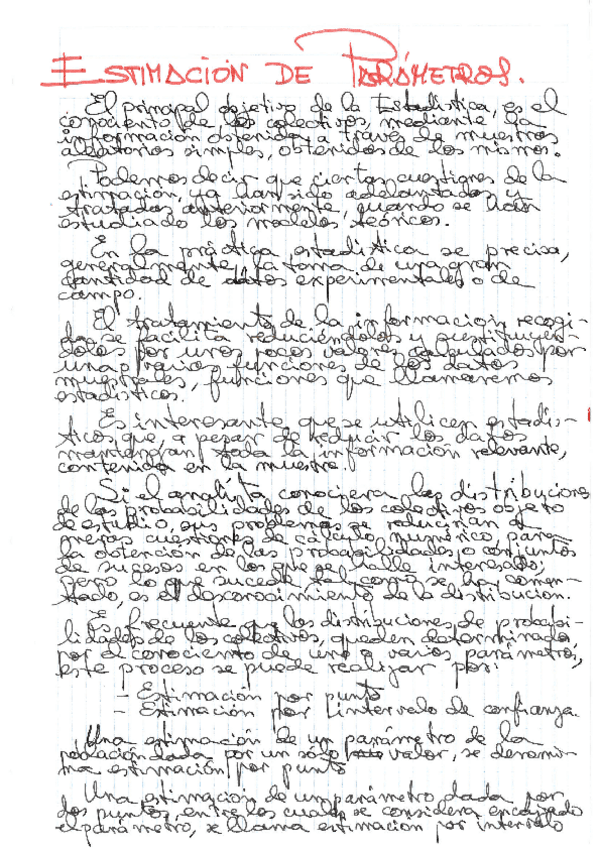 ESTIMACIÓN DE PARÁMETROS.
El principal objetivo de la Estadística, es el
conociento de los colectivos, mediente la
información obtenida a través de muestras
aleatorias simples, obtenidas de los mismos.
Podemos decir que ciertas cuestiones de la
estimación, ya han sido adelantadas y
tratadas anteriormente, cuando se han
estudiado los modelos teóricos.
En la práctica estadística se precisa,
generalmente, la toma de una gran
cantidad de datos experimentales o de
campo.
El tratamiento de la información recogi-
da, se facilita reduciéndolos y sustituyen-
dolos por unos pocos valores calculados por
unas funciones de los datos
muestrales, funciones que llamaremos
estadísticos.
Es interesante, que se utilicen estadís-
ticos, que, a pesar de reducir los datos
mantengan toda la información relevante,
contenida en la muestra.
Si el analista conociera las distribuciones
de las probabilidades de los colectivos objeto
de estudio, sus problemas se reducirían a
meras cuestiones de cálculo numérico, para
la obtención de las probabilidades o conjuntos
de sucesos en los que se halle interesado;
pero lo que sucede, tal como se ha comen-
tado, es el desconocimiento de la distribución.
Es frecuente que las distribuciones de probabi-
lidades de los colectivos, queden determinadas
por el conociento de uno o varios parámetros,
este proceso se puede realizar por:
- Estimación por punto
- Estimación por intervalo de confianza.
Una estimación de un parámetro de la
población dada por un sólo valor, se denomi-
na estimación por punto
Una estimación de un parámetro dada por
dos puntos, entre los cuales se considera encajado
el parámetro, se llama estimacion por intervalo